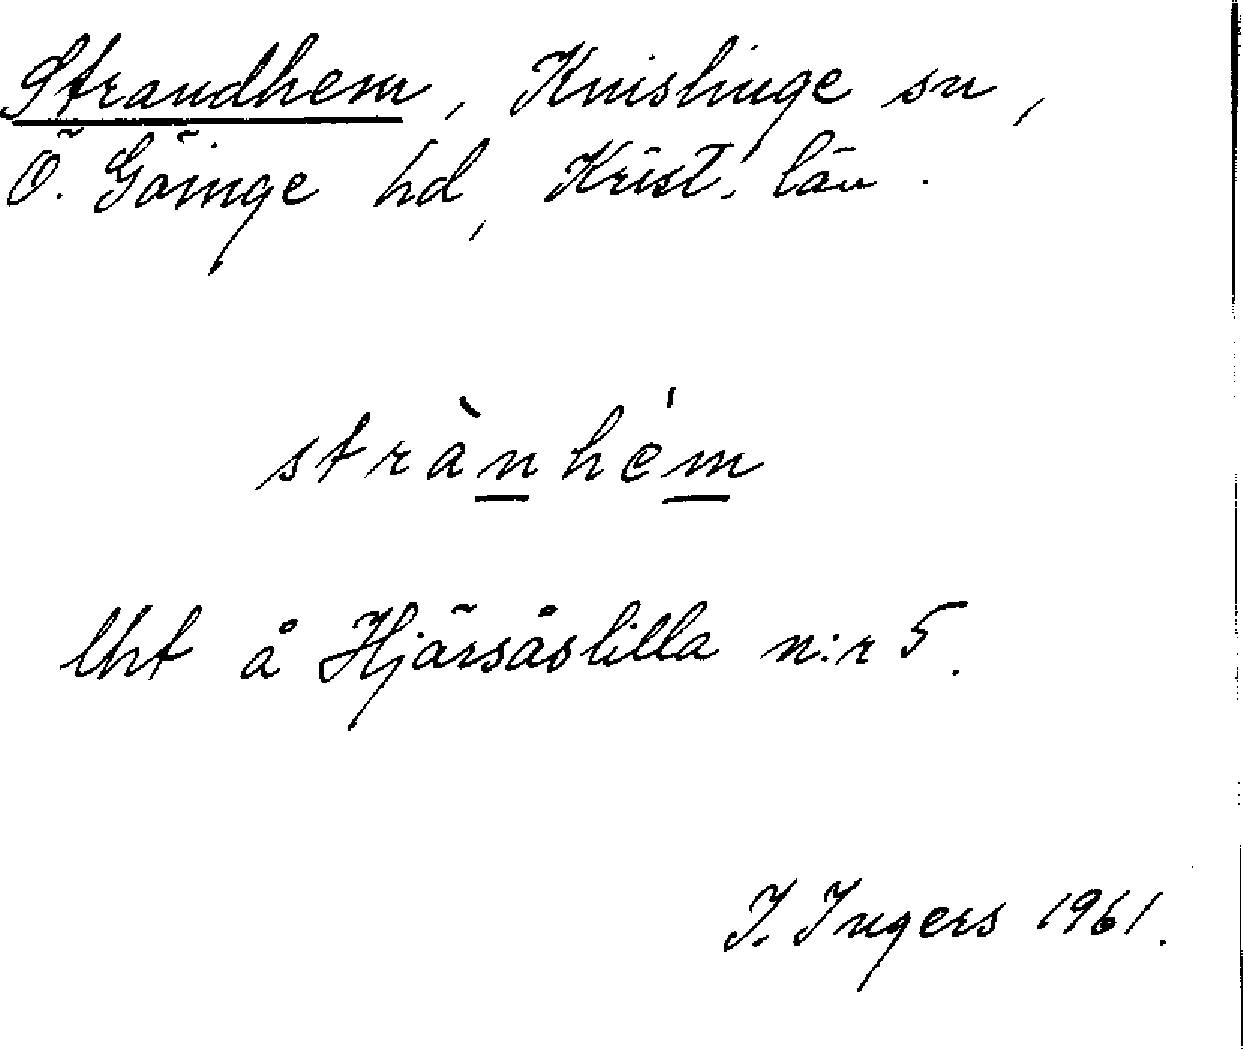 Strandhem, Knislinge sn,
Ö. Göinge hd, Krist. län.
strànhém
lht å Hjärsåslilla n:r 5.
I. Ingers 1961.